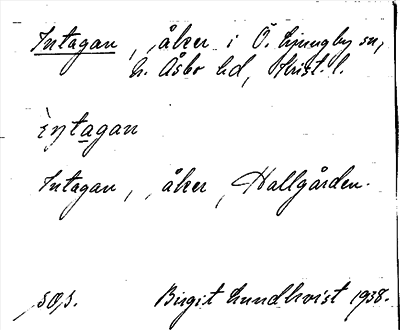 Intagan, åker i Ö. Ljungby sn,
N. Åsbo hd, Krist. l.
intagan
Intagan, åker, Hallgården.
Birgit Lundkvist 1938.